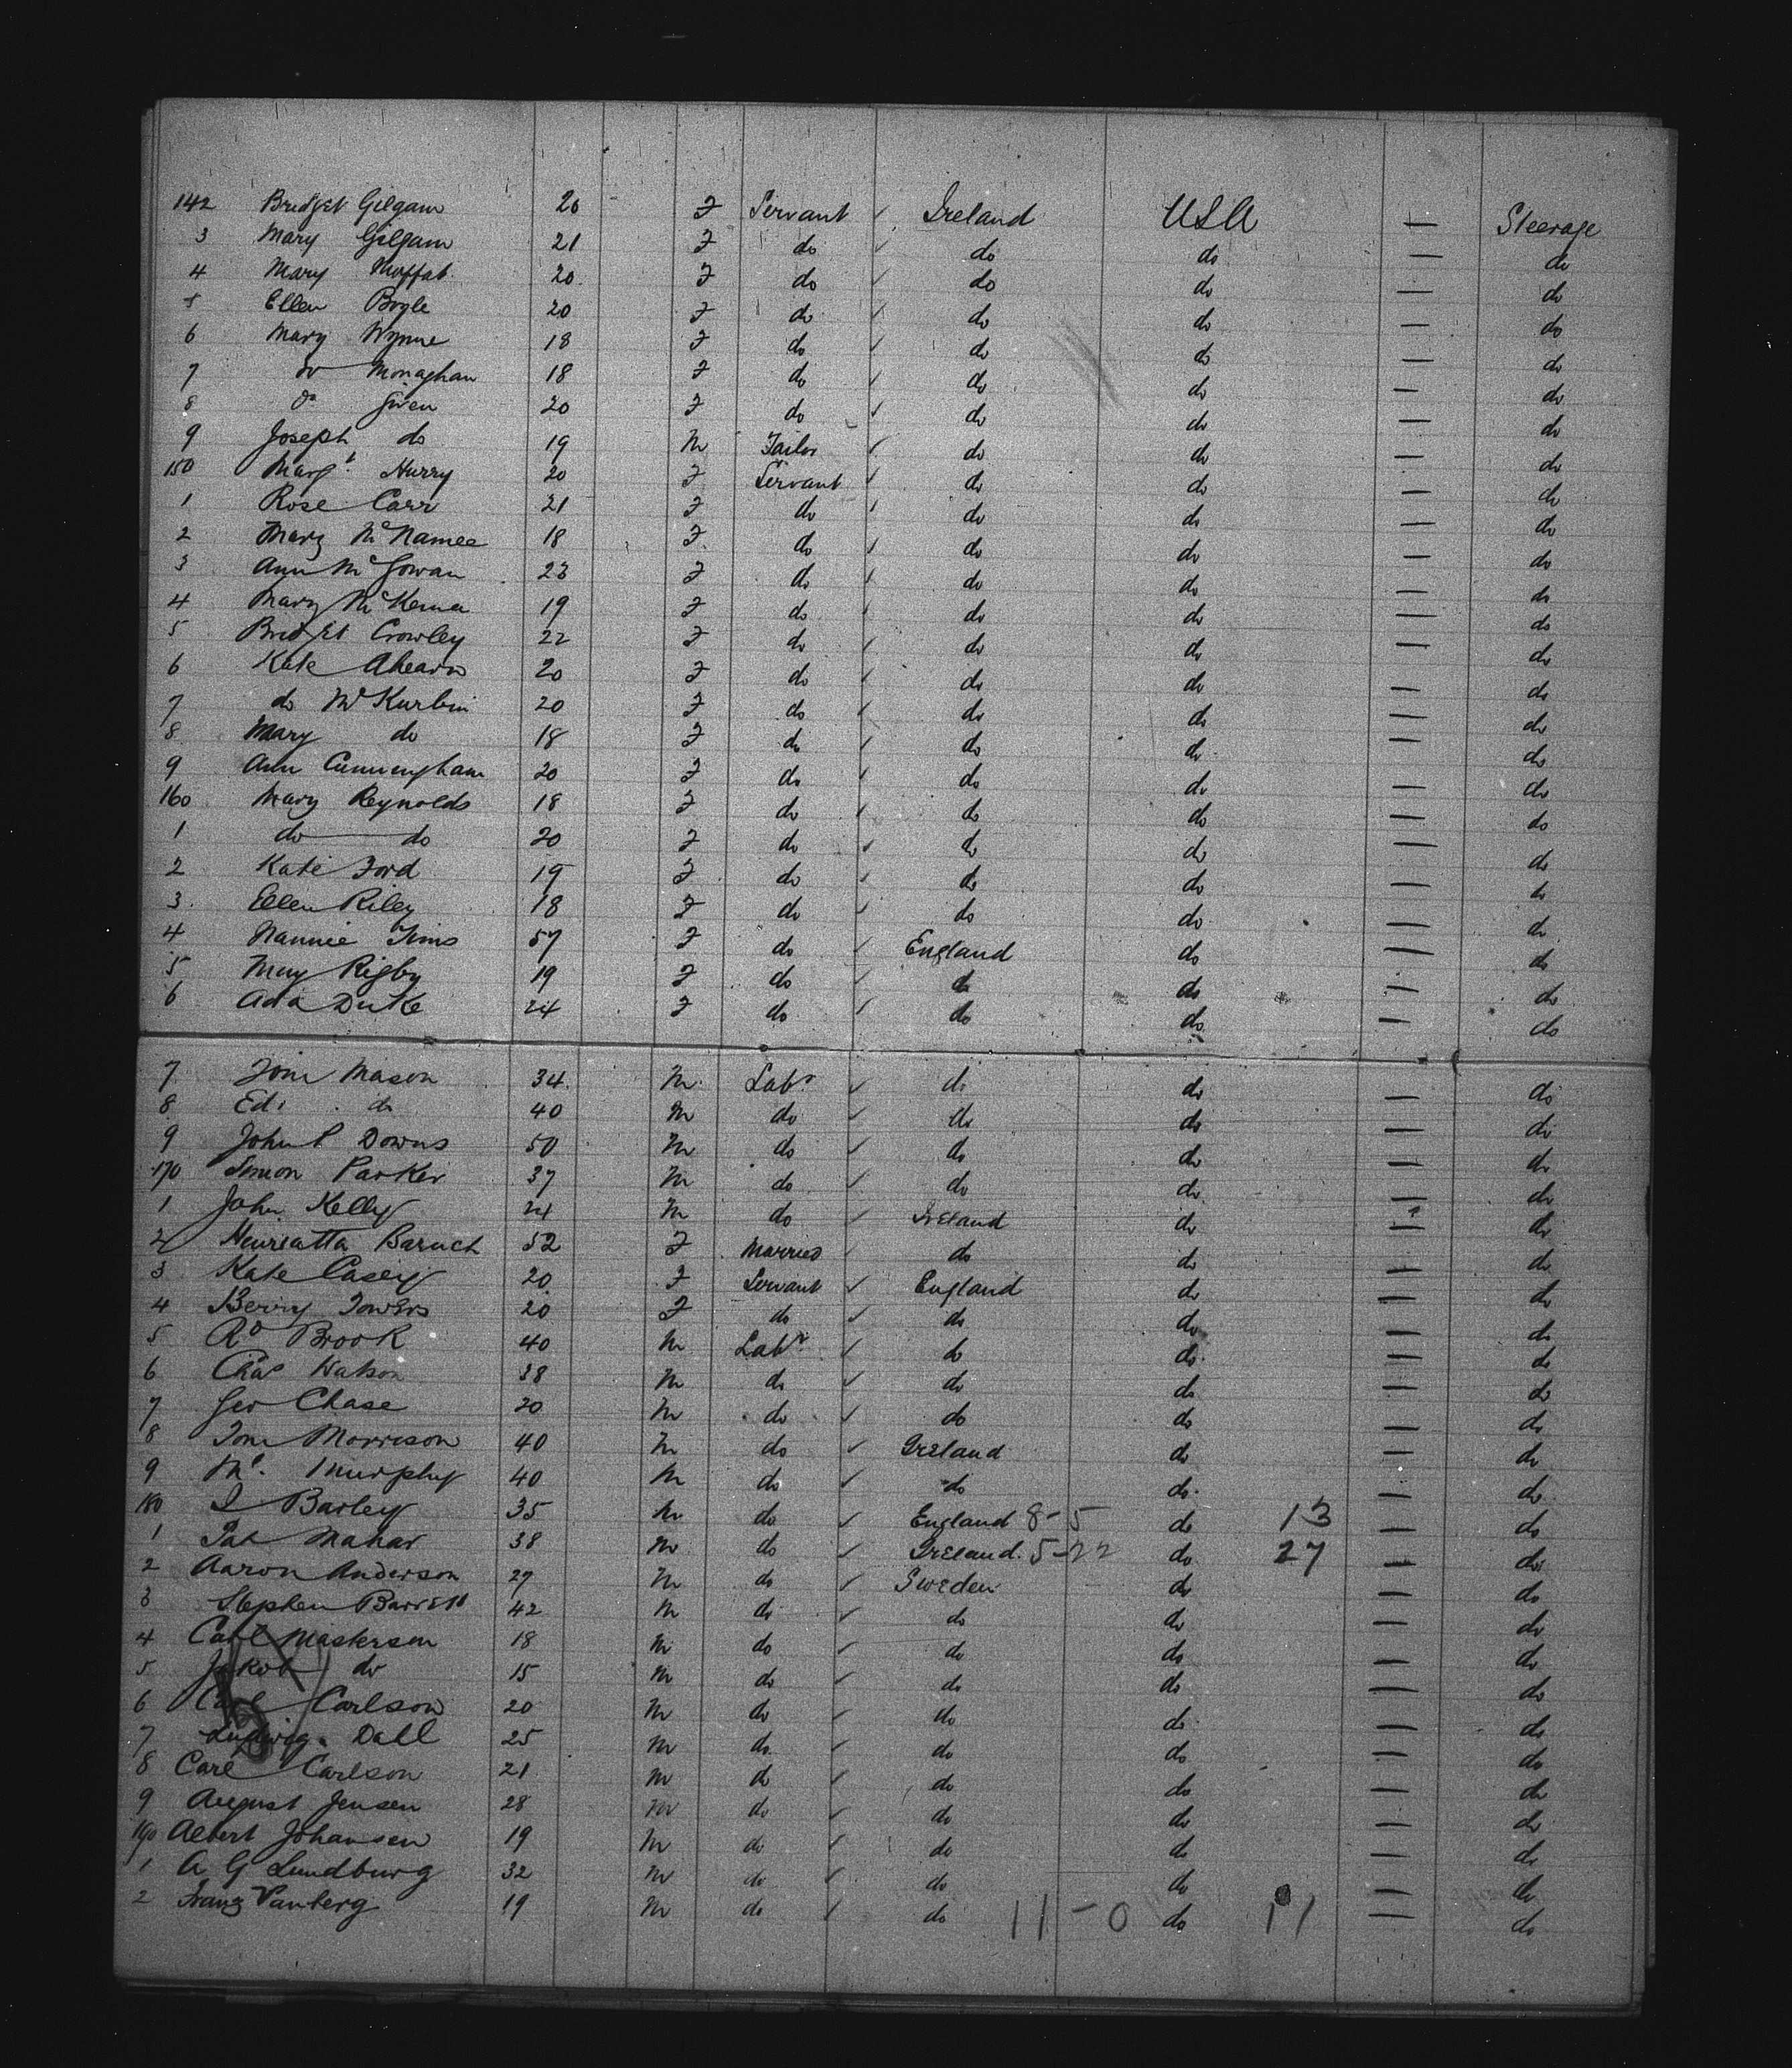 142 Bridget Gilgam 20 F Servant ✓ Ireland USA — Steerage
3 Mary Gilgam 21 F do ✓ do do — do
4 Mary Moffat 20 F do ✓ do do — do
5 Ellen Bogle 20 F do ✓ do do — do
6 Mary Wynne 18 F do ✓ do do — do
7 do Monaghan 18 F do ✓ do do — do
8 do Given 20 F do ✓ do do — do
9 Joseph do 19 M Tailor ✓ do do — do
150 Margt Hurry 20 F Servant ✓ do do — do
1 Rose Carr 21 F do ✓ do do — do
2 Mary McNamee 18 F do ✓ do do — do
3 Ann McGowan 23 F do ✓ do do — do
4 Mary McKenna 19 F do ✓ do do — do
5 Bridget Crowley 22 F do ✓ do do — do
6 Kate Ahearn 20 F do ✓ do do — do
7 do McKurbin 20 F do ✓ do do — do
8 Mary do 18 F do ✓ do do — do
9 Ann Cunningham 20 F do ✓ do do — do
160 Mary Reynolds 18 F do ✓ do do — do
1 do do 20 F do ✓ do do — do
2 Kate Ford 19 F do ✓ do do — do
3 Ellen Riley 18 F do ✓ do do — do
4 Nannie Tims 57 F do ✓ England do — do
5 May Rigby 19 F do ✓ do do — do
6 Ada Duke 24 F do ✓ do do — do
7 Tom Mason 34 M Labr ✓ do do — do
8 Ed. do 40 M do ✓ do do — do
9 John P Downs 50 M do ✓ do do — do
170 Simon Parker 37 M do ✓ do do — do
1 John Kelly 24 M do ✓ Ireland do — do
2 Henrietta Baruch 52 F Married ✓ do do — do
3 Kate Casey 20 F Servant ✓ England do — do
4 Berry Towers 20 F do ✓ do do — do
5 Rd Brook 40 M Labr ✓ do do — do
6 Chas Watson 38 M do ✓ do do — do
7 Geo Chase 20 M do ✓ do do — do
8 Tom Morrison 40 M do ✓ Ireland do — do
9 Ml. Murphy 40 M do ✓ do do — do
180 I Barley 35 M do ✓ England 8-5 do 13 — do
1 Pat Mahar 38 M do ✓ Ireland 5-22 do 27 — do
2 Aaron Anderson 27 M do ✓ Sweden do — do
3 Stephen Barrett 42 M do ✓ do do — do
4 Carl Masterson 18 M do ✓ do do — do
5 Jakob do 15 M do ✓ do do — do
6 Carl Carlson 20 M do ✓ do do — do
7 Ludwig Dall 25 M do ✓ do do — do
8 Carl Carlson 21 M do ✓ do do — do
9 August Jensen 28 M do ✓ do do — do
190 Albert Johansen 19 M do ✓ do do — do
1 A G Lundburg 32 M do ✓ do do — do
2 Franz Vanberg 19 M do ✓ do 11-0 do 11 — do